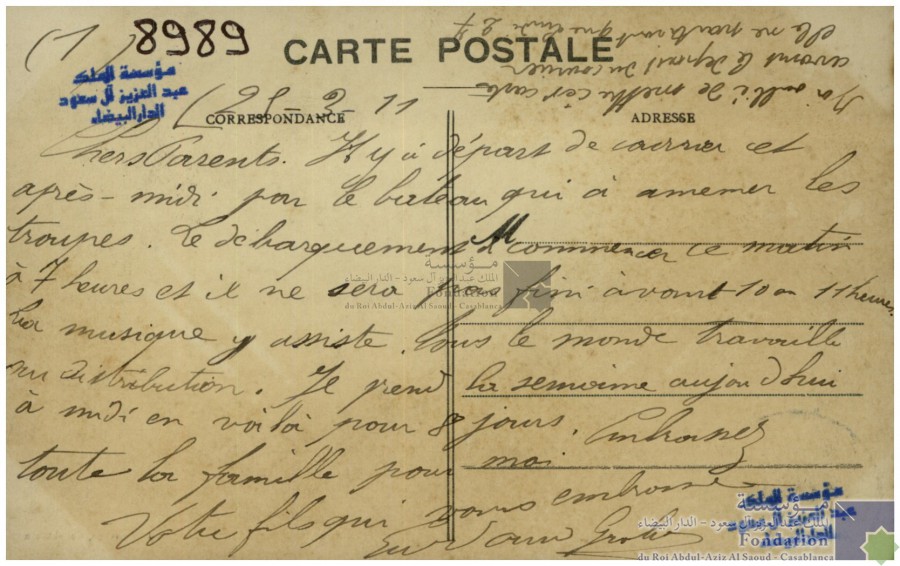 (1)
8989
CARTE POSTALE
مؤسسة الملك
عبد العزيز آل سعود
الدار البيضاء
CORRESPONDANCE
ADRESSE
J'ai oublié de mettre cet carte
avant le départ du courrier
elle ne partirait que lundi 27
(25-3-11
Chers Parents. Il y à départ de courrier cet
après-midi par le bateau qui à amemer les
troupes. Le débarquement à commencer ce matin
à 7 heures et il ne sera pas fini avant 10 ou 11 heures.
La musique y assiste. Tous le monde travaille
au distribution. Je prend la semaine aujourd'hui
à midi en voilà pour 8 jours. Embrassez
toute la famille pour moi
Votre fils qui vous embrasse
M
مؤسسة
الملك عبد العزيز آل سعود - الدار البيضاء
Fondation
du Roi Abdul-Aziz Al Saoud - Casablanca
مؤسسة الملك
مؤسسة
الملك عبد العزيز آل سعود - الدار البيضاء
Fondation
du Roi Abdul-Aziz Al Saoud - Casablanca